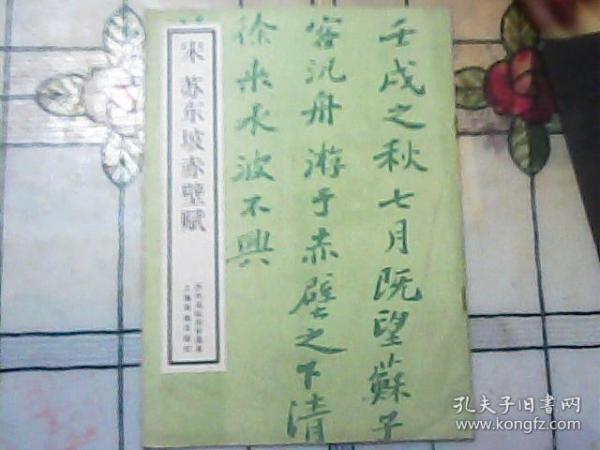 壬戌之秋七月既望蘇子
客汎舟游于赤壁之下清
徐来水波不興
宋 苏东坡赤壁赋
历代法帖
孔夫子旧书网
www.kongfz.com